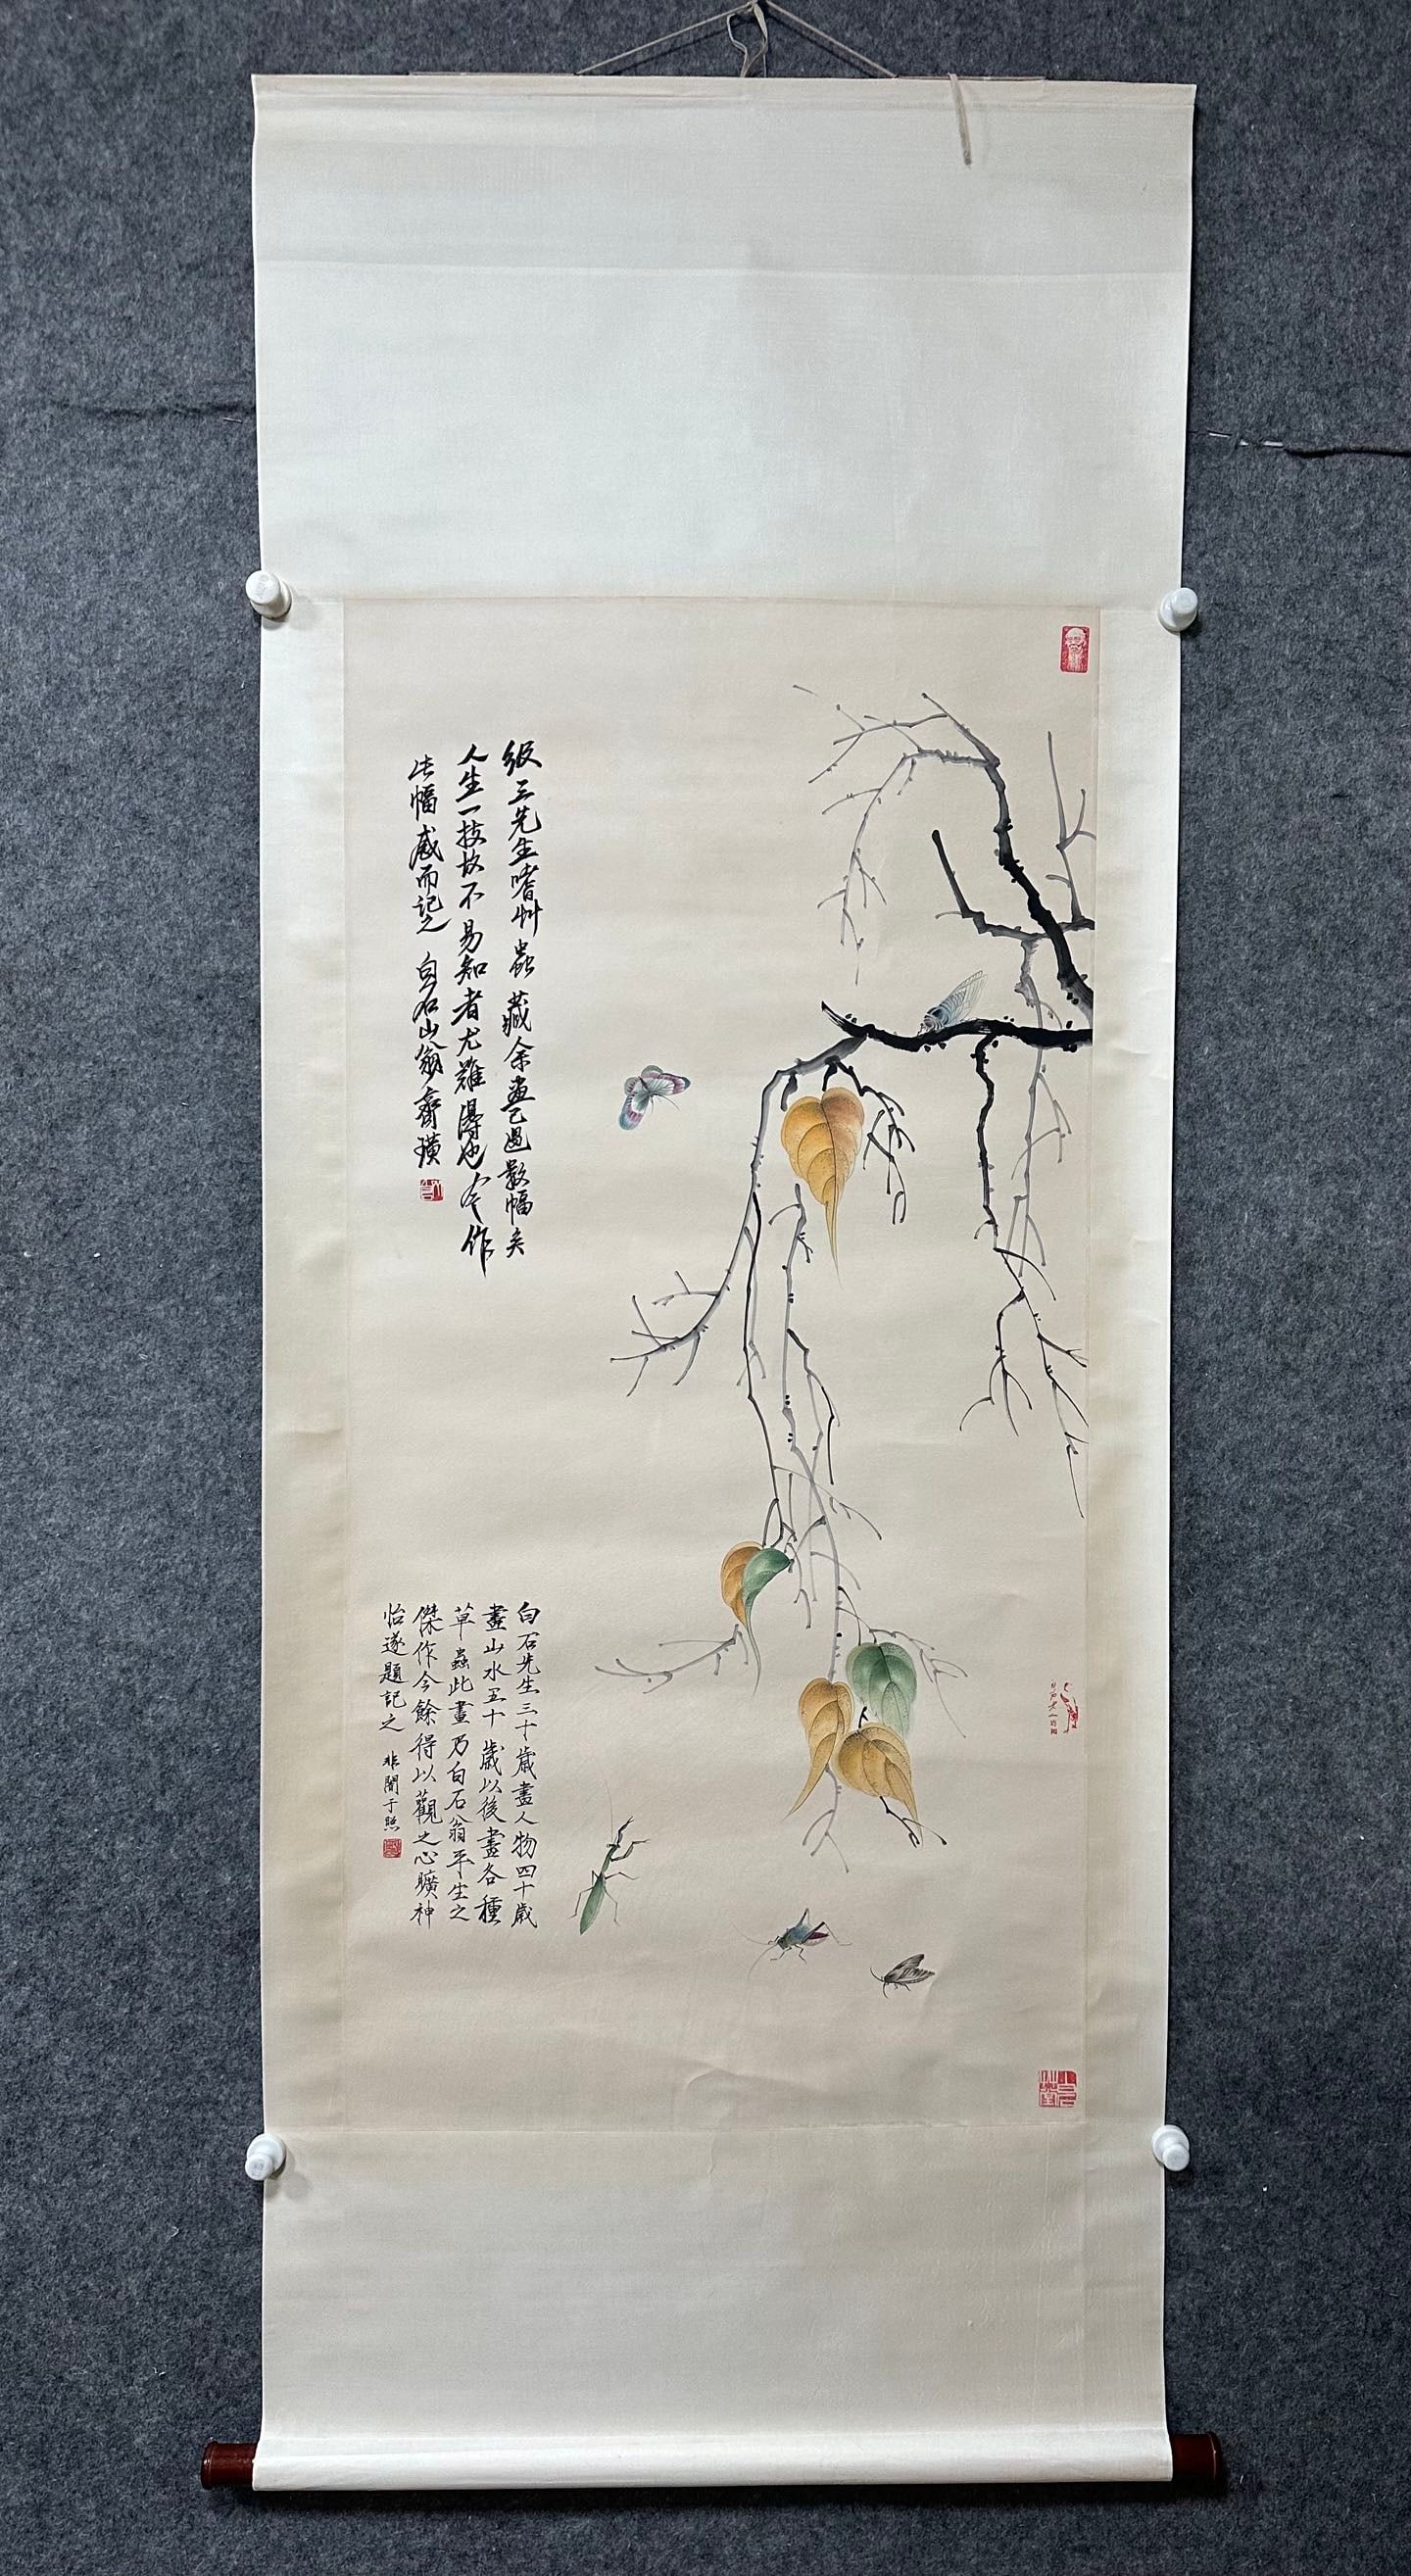 级三先生嗜艸蟲藏余畫已過數幅矣
人生一技故不易知者尤難得也今作
此幅感而記之 白石山翁齊璜
白石先生三十歲畫人物四十歲
畫山水五十歲以後畫各種
草蟲此畫乃白石翁平生之
傑作今餘得以觀之心曠神
怡遂題記之 非闇于照